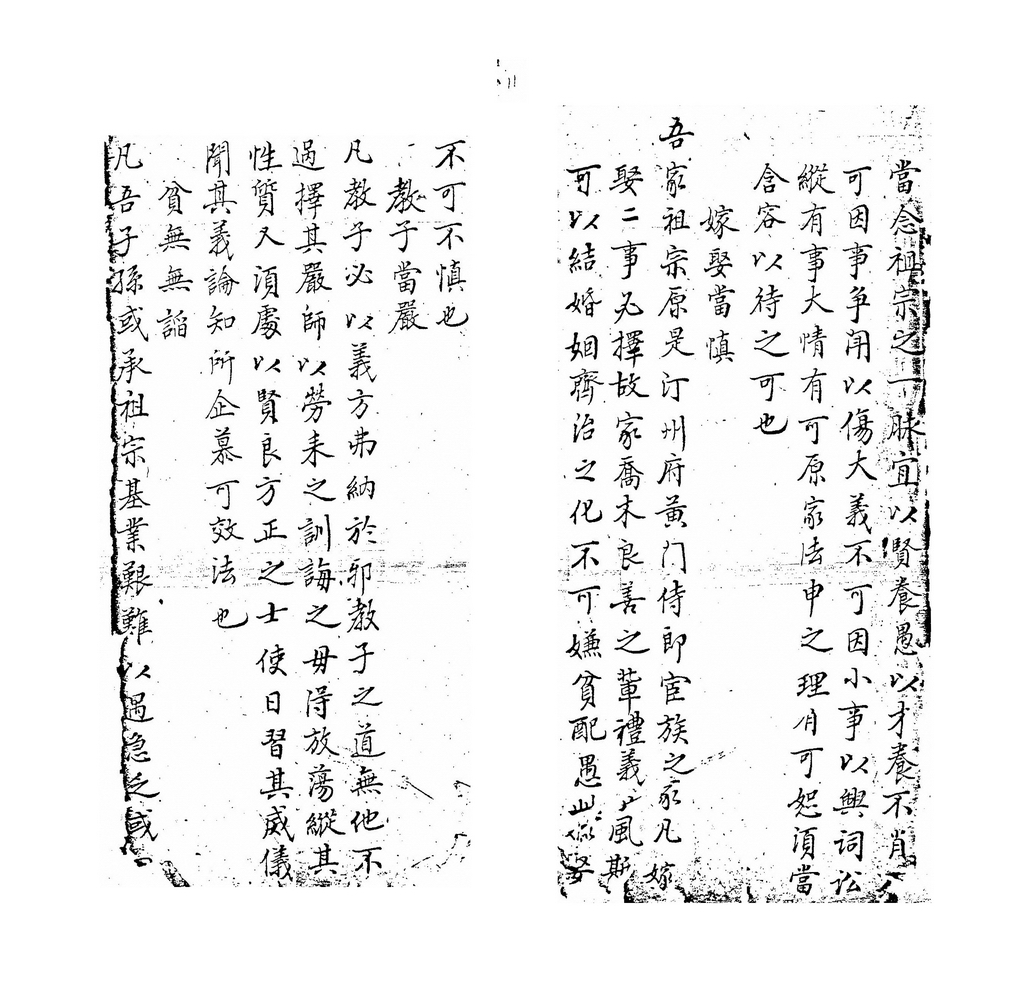 當念祖宗之一脉宜以賢養愚以才養不肖
可因事争鬧以傷大義不可因小事以興詞訟
縱有事大情有可原家法申之理有可恕須當
含容以待之可也
嫁娶當慎
吾家祖宗原是汀州府黃门侍郎宦族之家凡嫁
娶二事必擇故家喬木良善之輩禮義之風斯
可以結婚姻齊治之化不可嫌貧配愚
不可不慎也
教子當嚴
凡教子必以義方弗納於邪教子之道無他不
過擇其嚴師以勞来之訓誨之毋得放蕩縱其
性質又須處以賢良方正之士使日習其威儀
聞其義論知所企慕可效法也
貧無無諂
凡吾子孫或承祖宗基業艱難以過急乏或